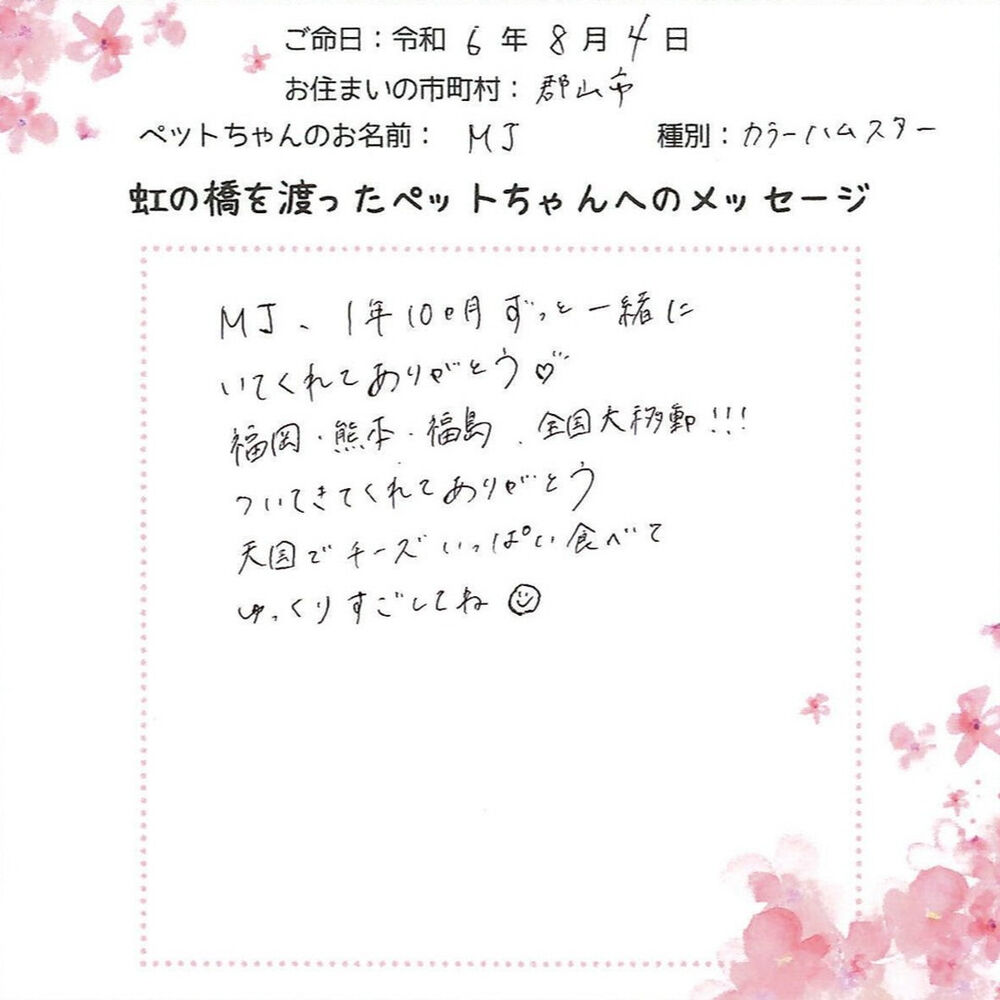 ご命日：令和 6 年 8 月 4 日
お住まいの市町村： 郡山市
ペットちゃんのお名前： MJ 種別：カラーハムスター
虹の橋を渡ったペットちゃんへのメッセージ
MJ、1年10ヶ月ずっと一緒に
いてくれてありがとう♡
福岡・熊本・福島、全国大移動!!!
ついてきてくれてありがとう
天国でチーズいっぱい食べて
ゆっくりすごしてね☺